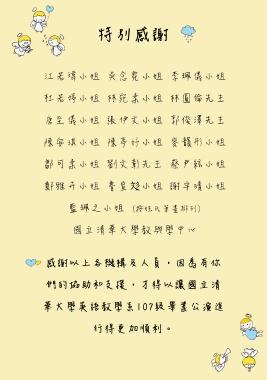 特別感謝
江若瑋小姐 吳念霓小姐 李珮儀小姐
杜若婷小姐 林宛柔小姐 林圓倫先生
唐至儀小姐 張伊文小姐 郭俊澤先生
陳安琪小姐 陳亭妤小姐 麥馥彤小姐
鄒司柔小姐 劉文彰先生 蔡尹絃小姐
鄭雅卉小姐 小姐 謝宇晴小姐
藍珮之小姐 (按姓氏筆畫排列)
國立清華大學教與學中心
感謝以上各機構及人員,因為有你
們的協助和支援,才得以讓國立清
華大學英語教學系107級畢業公演進
行得更加順利。